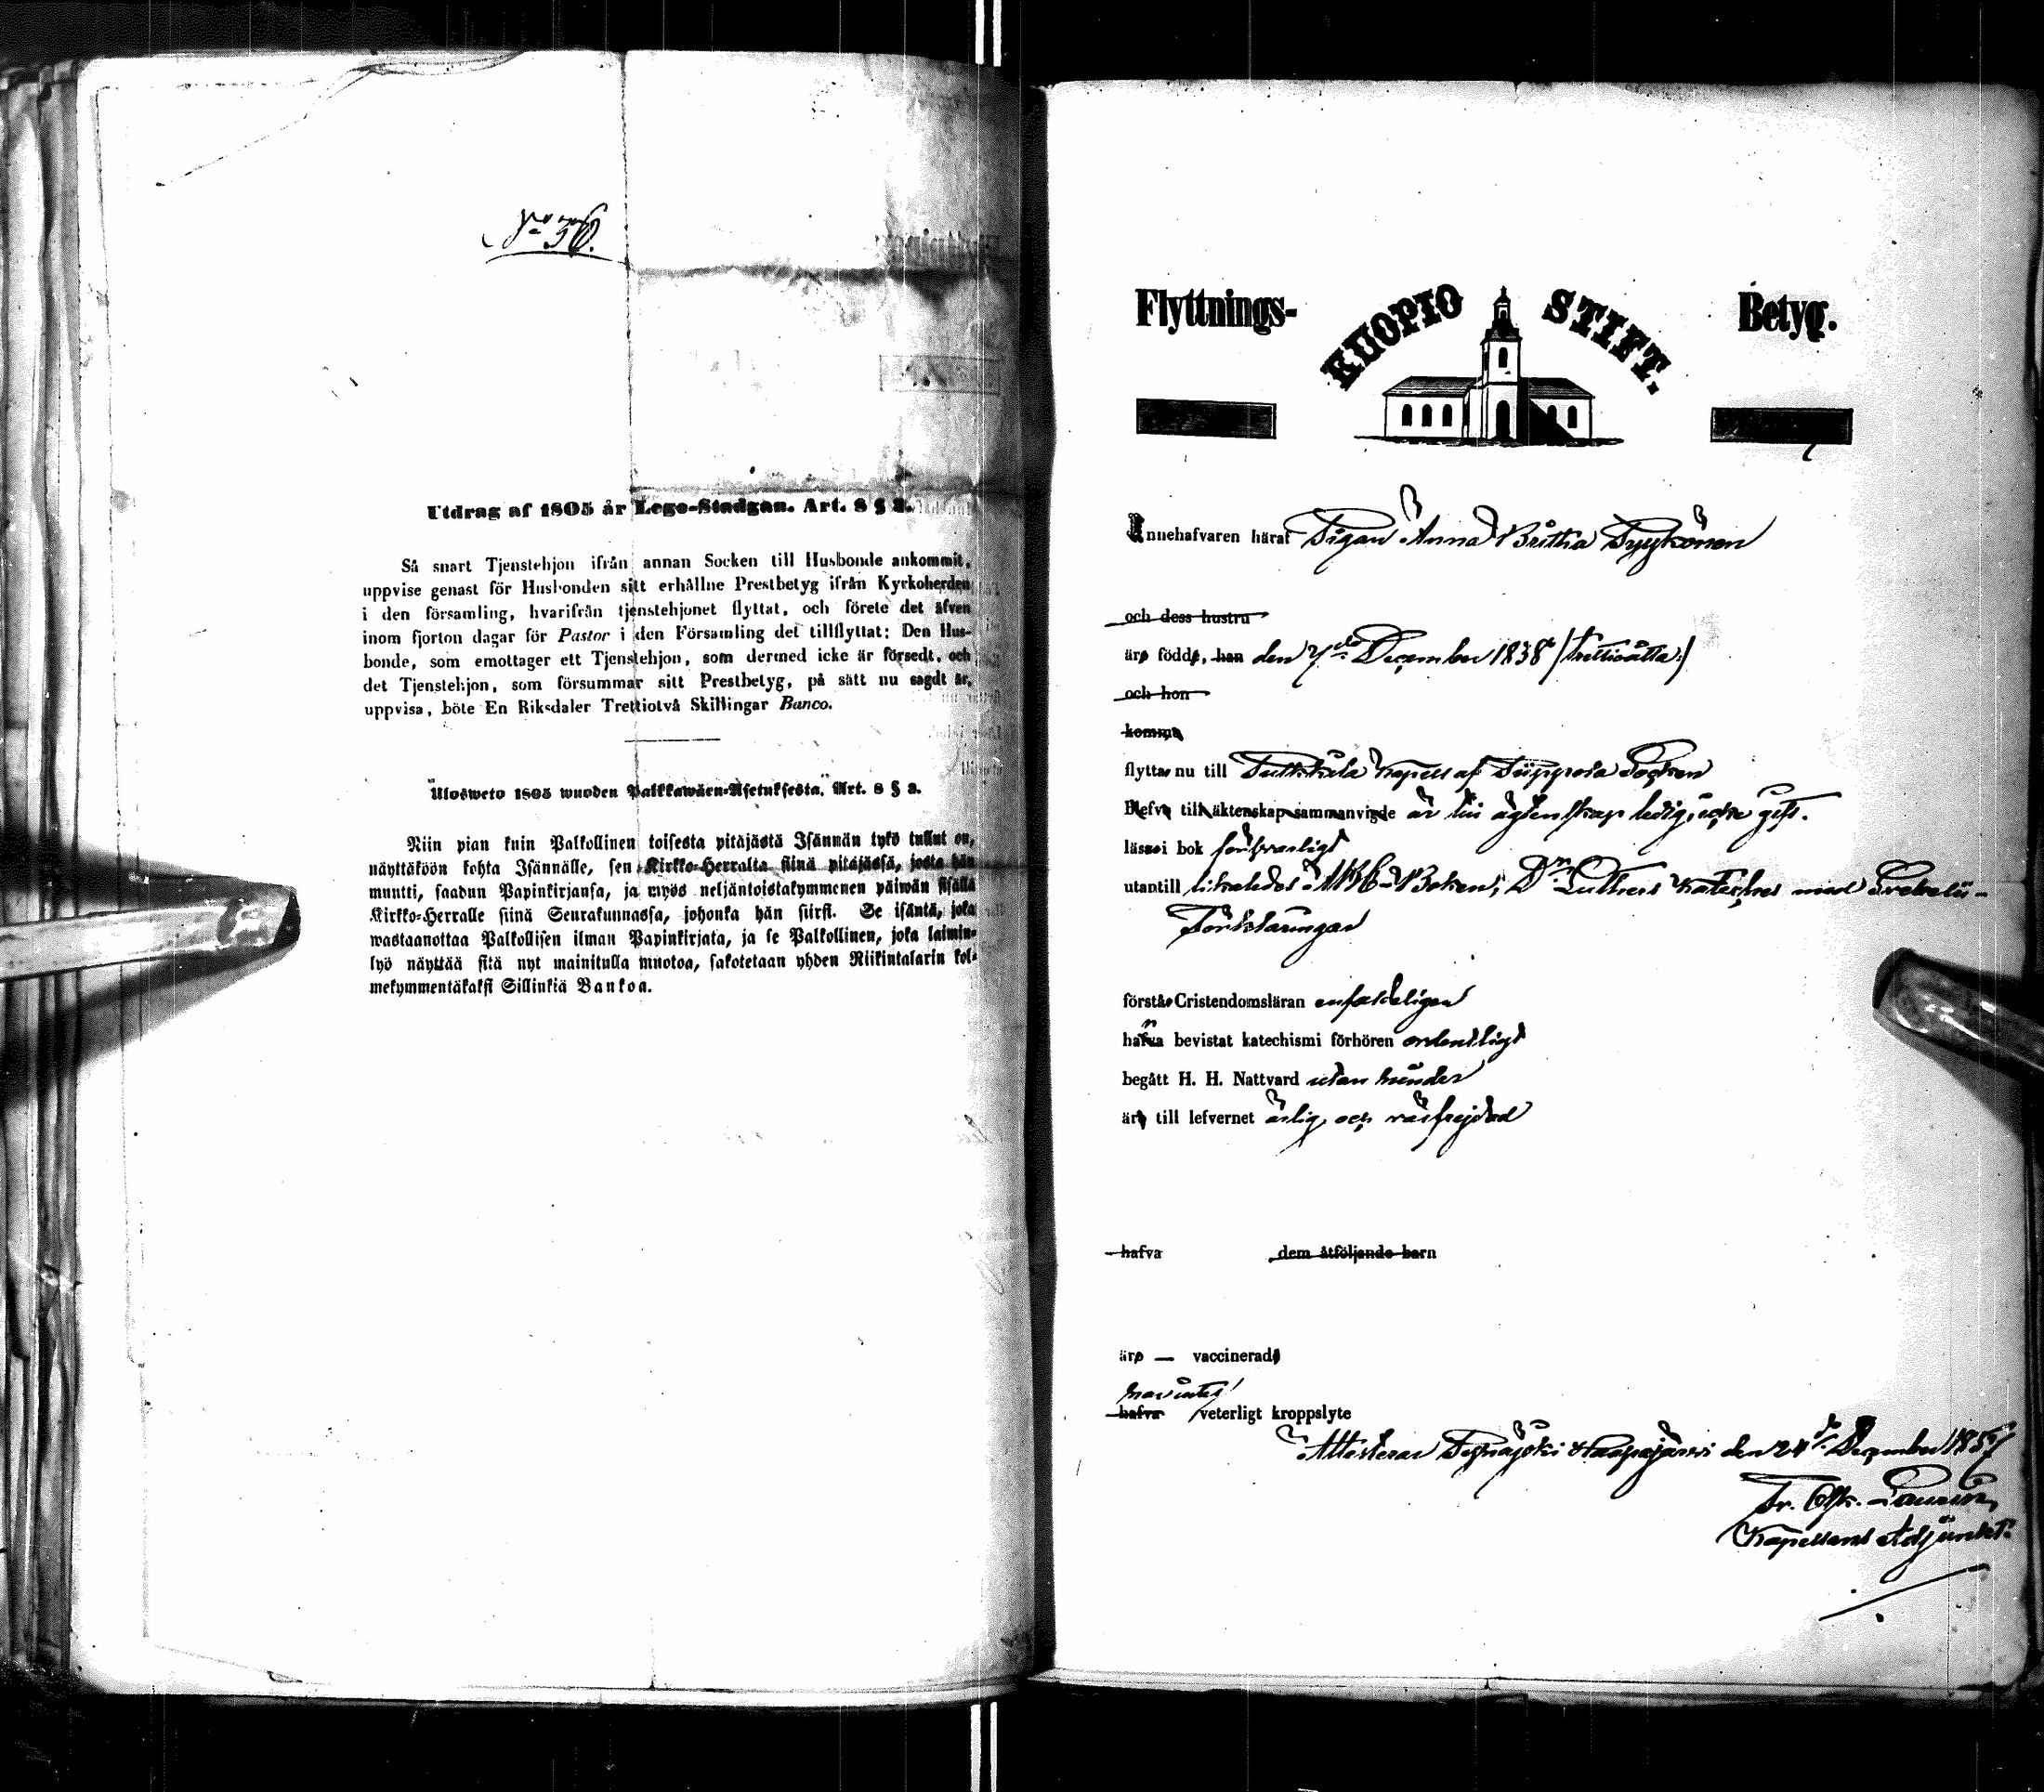 No 56.
Utdrag af 1805 år Lego-Stadgan. Art. 8 § 3.
Så snart Tjenstehjon ifrån annan Socken till Husbonde ankommit,
uppvise genast för Husbonden sitt erhållne Prestbetyg ifrån Kyrkoherden
i den församling, hvarifrån tjenstehjonet flyttat, och förete det äfven
inom fjorton dagar för Pastor i den Församling det tillflyttat: Den Hus-
bonde, som emottager ett Tjenstehjon, som dermed icke är försedt, och
det Tjenstehjon, som försummar sitt Prestbetyg, på sätt nu sagdt är,
uppvisa, böte En Riksdaler Trettiotvå Skillingar Banco.
Ulosweto 1805 wuoden Palkkawäen-Asetuksesta. Art. 8 § 3.
Niin pian kuin Palkollinen toisesta pitäjästä Isännän tykö tullut on,
näyttäköön kohta Isännälle, sen Kirkko-Herralta siinä pitäjässä, josta hän
muutti, saadun Papinkirjansa, ja myös neljäntoistakymmenen päiwän sisällä
Kirkko-Herralle siinä Seurakunnassa, johonka hän siirsi. Se isäntä, joka
wastaanottaa Palkollisen ilman Papinkirjata, ja se Palkollinen, joka laimin-
lyö näyttää sitä nyt mainitulla muotoa, sakotetaan yhden Riikintalarin kol-
mekymmentäkaksi Sillinkiä Bankoa.
Flyttnings- KUOPIO STIFT. Betyg.
Innehafvaren häraf Pigan Anna Britha Tyykönen
och dess hustru
äro födde, han den 7de December 1838 /:trettioåtta:/
och hon
komma
flytta nu till Pulkkila Kapell af Piippola Socken
Blefve till äktenskap sammanvigde är till ägtenskap ledig, icke gift.
läsa i bok försvarligt
utantill likaledes ABC-Boken, Dr Lutheri Kateches med Svebelii
Förklaringar
förstå Cristendomsläran enfaldeligen
hafva bevistat katechismi förhören ordentligt
begått H. H. Nattvard utan hinder
äro till lefvernet ärlig och välfrejdad
hafva dem åtföljande barn
äro — vaccinerade
har intet
hafva veterligt kroppslyte
Attesterar Pyhäjoki Haapajärvi den 24de December 1857
Kapellans Adjunkt.